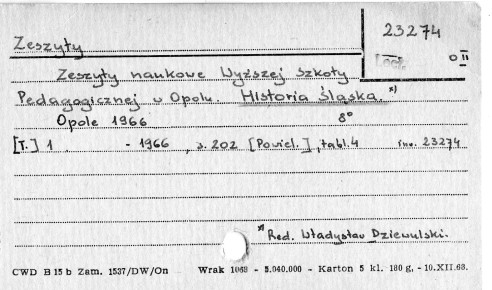 23274
Zeszyty
0 II
Zeszyty naukowe Wyższej Szkoły
Pedagogicznej w Opolu. Historia Śląska. *)
Opole 1966 8°
[T.] 1 - 1966, s. 202 [Powiel.], tabl. 4 inw. 23274
*) Red. Władysław Dziewulski.
CWD B 15 b Zam. 1537/DW/On Wrak 1068 - 5.040.000 - Karton 5 kl. 180 g, - 10.XII.68.